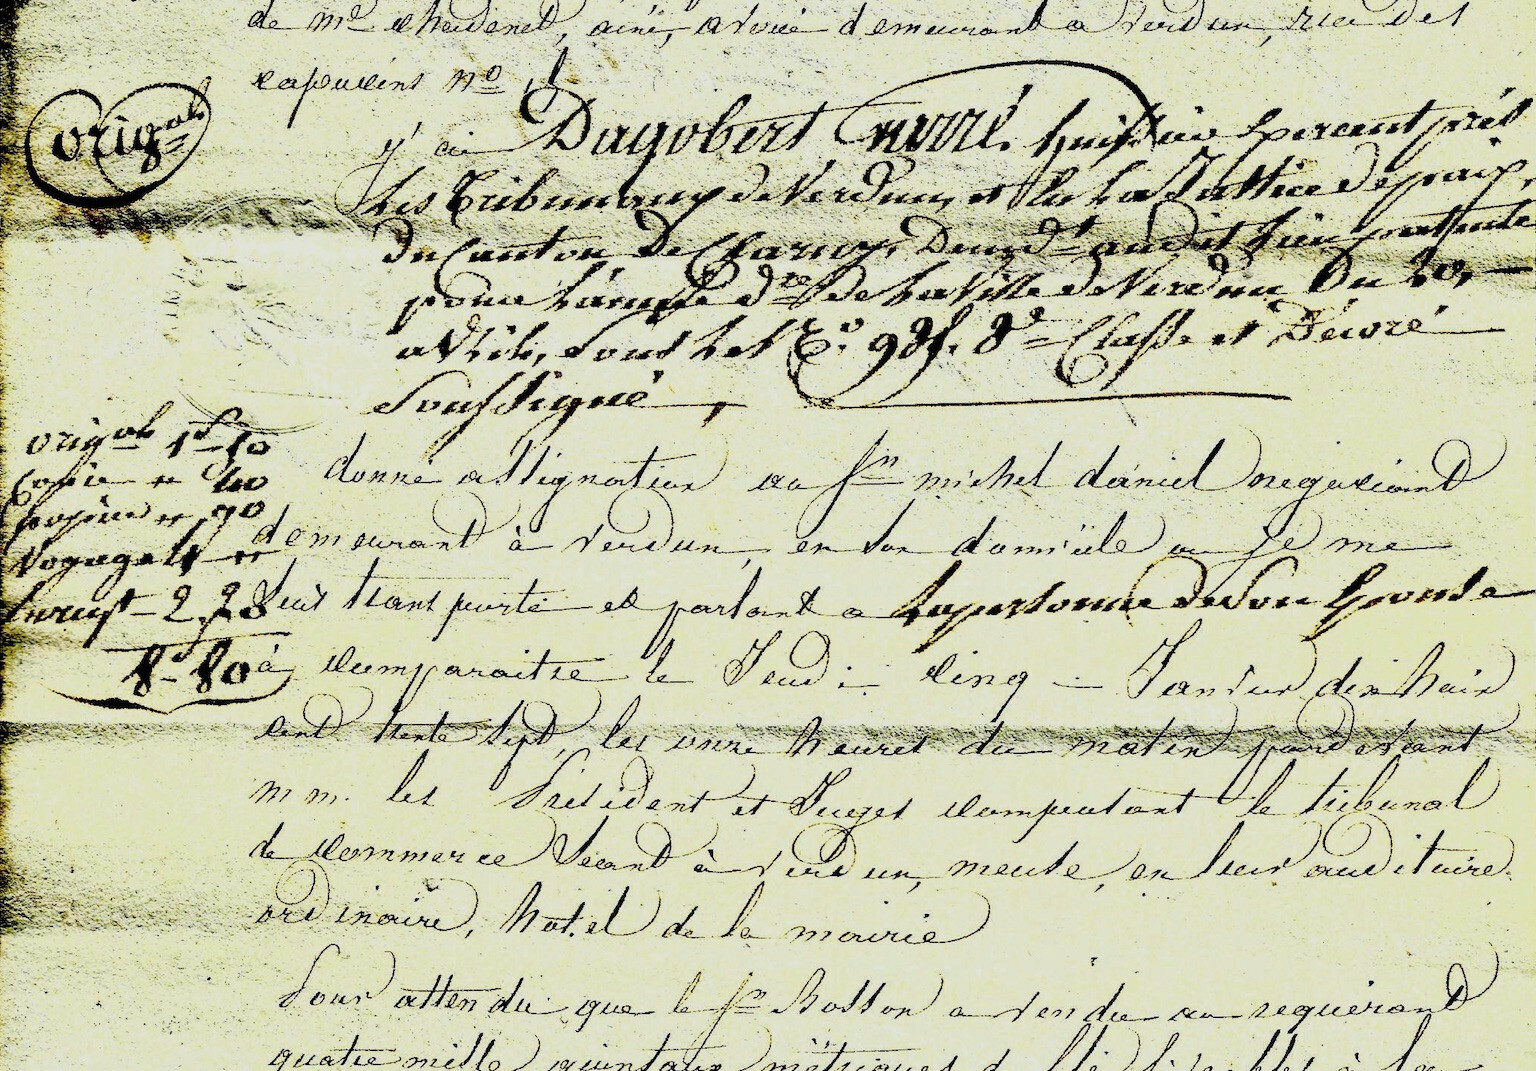 de me chedenet, ainé, avoué demeurant a verdun, rue des
capucins no
Origal
j'ai Dagobert huissier exercent près
Les Tribunaux de Verdun, et la Justice de paix,
du Canton De Charny, Demt audit lieu, patenté
pour l'année dre de la Ville de Verdun Du 20,
avril, sous le No. 98f. 8e Classe et
Soussigné,
donné assignation au sr michel daniel negociant
demeurant à verdun, en son domicile ou je me
suis transporté et parlant a la personne de son Epouse
à comparaitre le Jeudi cinq Janvier dix huit
cent trente sept, les onze heures du matin pardevant
mm. les Président et Juges composant le tribunal
de commerce Séant à verdun, meuse, en leur auditoire
ordinaire, hotel de la mairie
origal 1f 50
Copie " 40
" 90
Voyage 4 "
Enregt 2, 20
Pour attendu que le sr Bosson a vendu au requérant
quatre mille quintaux métriques de blé